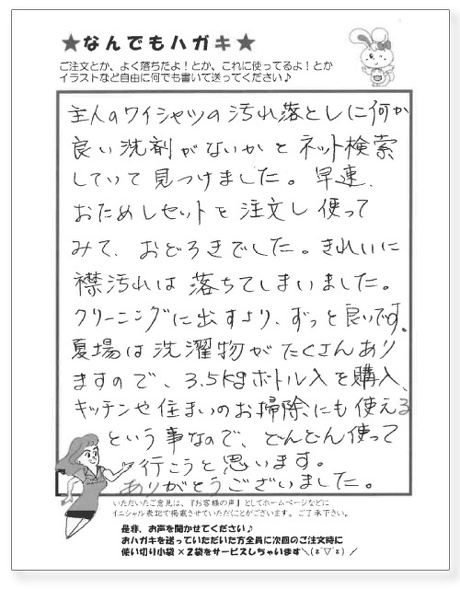 ★なんでもハガキ★
ご注文とか、よく落ちたよ！とか、これに使ってるよ！とか
イラストなど自由に何でも書いて送ってください♪
主人のワイシャツの汚れ落としに何か
良い洗剤がないかとネット検索
していて見つけました。早速、
おためしセットを注文し使って
みて、おどろきでした。きれいに
襟汚れは落ちてしまいました。
クリーニングに出すより、ずっと良いです。
夏場は洗濯物がたくさんあり
ますので、3.5kgボトル入を購入、
キッチンや住まいのお掃除にも使える
という事なので、どんどん使って
行こうと思います。
ありがとうございました。
いただいたご意見は、『お客様の声』としてホームページなどに
イニシャル表記で掲載させていただくことがございます。ご了承下さい。
是非、お声を聞かせてください♪
おハガキを送っていただいた方全員に次回のご注文時に
使い切り小袋×2袋をサービスしちゃいます＼(ε˙▽˙ε) ／